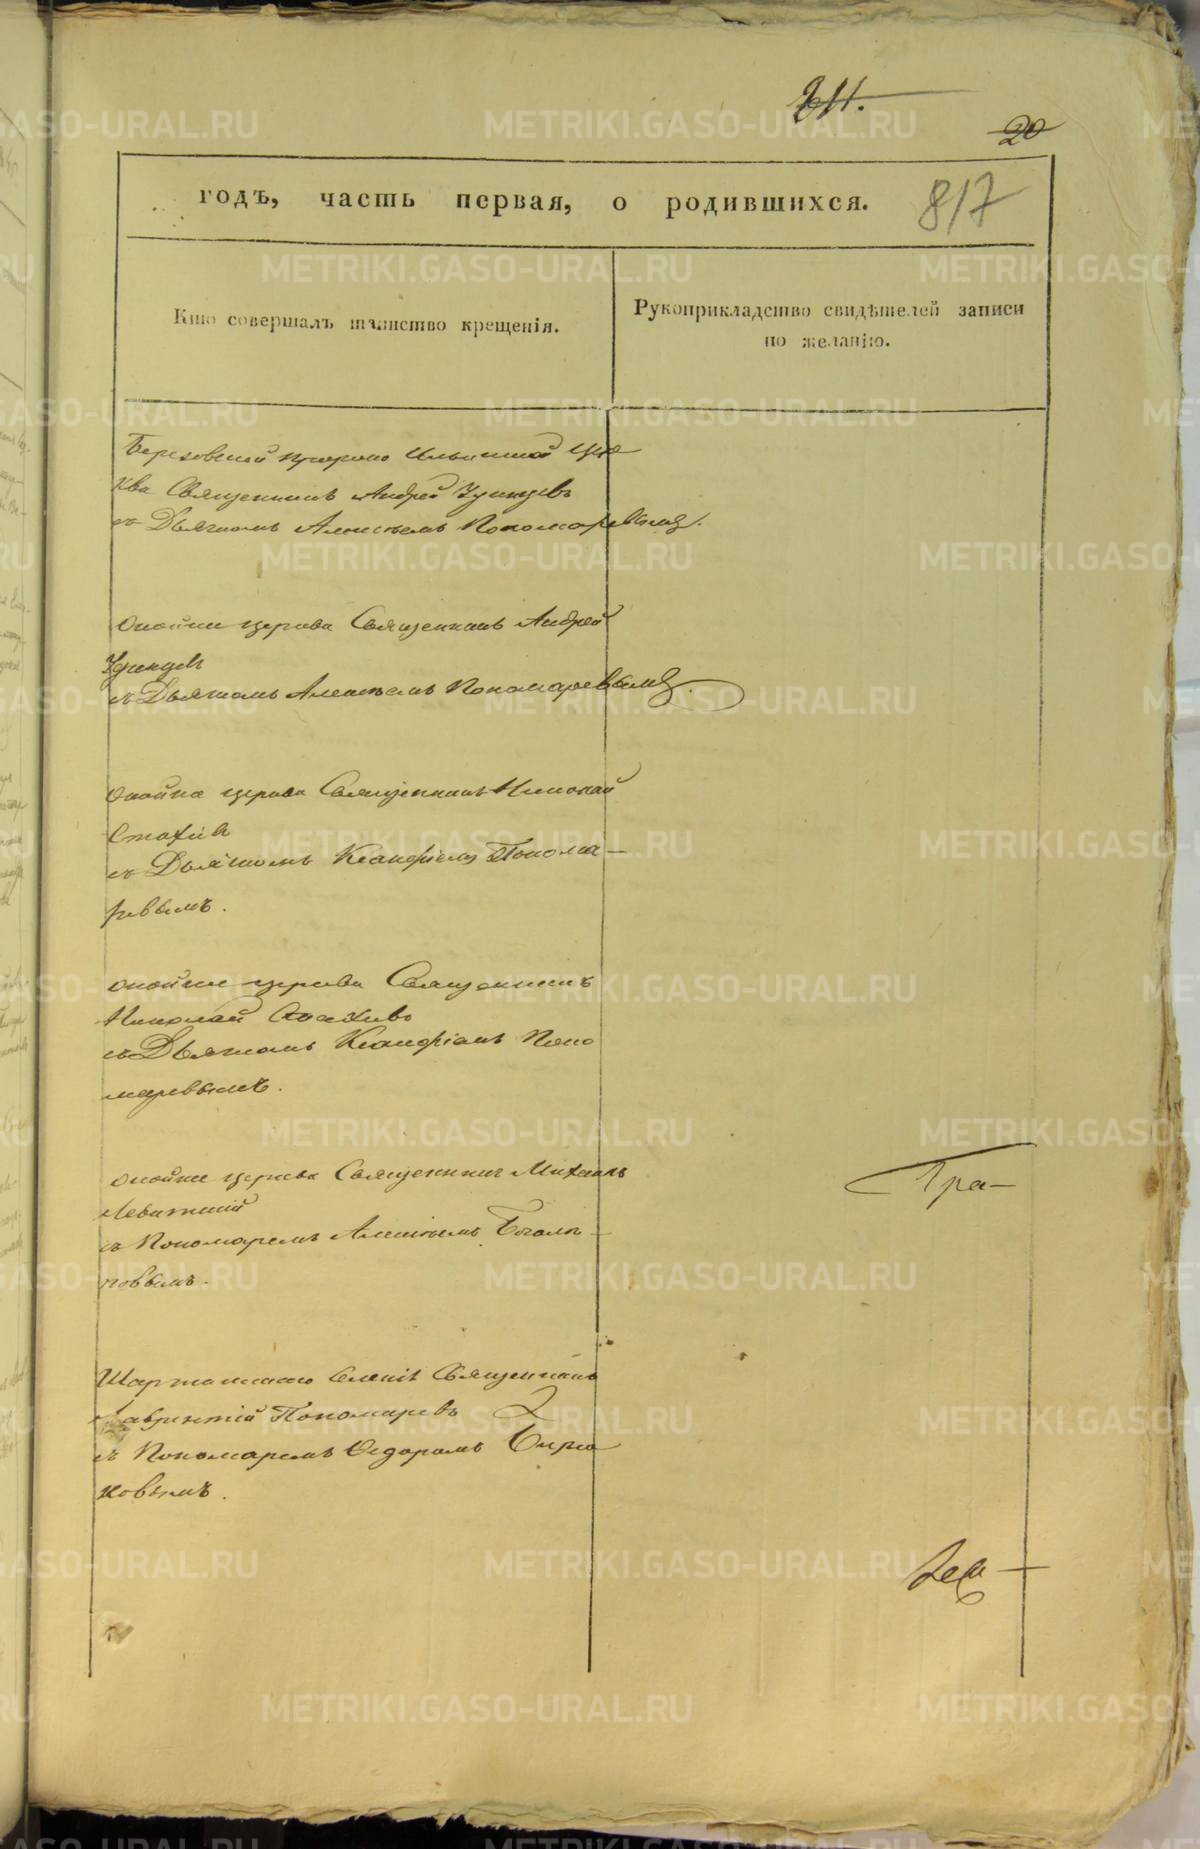 20
817
годъ, часть первая, о родившихся.
Кто совершалъ таинство крещенія.
Рукоприкладство свидѣтелей записи
по желанію.
Березовской Пророко Ильинской цер
кви Священникъ Андрей Удинцевъ
съ Дьячкомъ Алексѣемъ Пономаревымъ.
онойже церкви Священникъ Андрей
Удинцевъ
съ Дьячкомъ Алексѣемъ Пономаревымъ.
онойже церкви Священникъ Николай
Стахіев
съ Дьячкомъ Ксанфіемъ Понома-
ревымъ.
онойже церкви Священникъ
Николай
съ Дьячкомъ Ксанфіемъ Поно
маревымъ.
онойже церкви Священникъ Михаилъ
Левитскій
съ Пономаремъ Алексѣемъ
повымъ.
Шарташскаго Священникъ
Лаврентій Пономаревъ
съ Пономаремъ Ѳедоромъ Бирю
ковымъ.
Гра-
METRIKI.GASO-URAL.RU